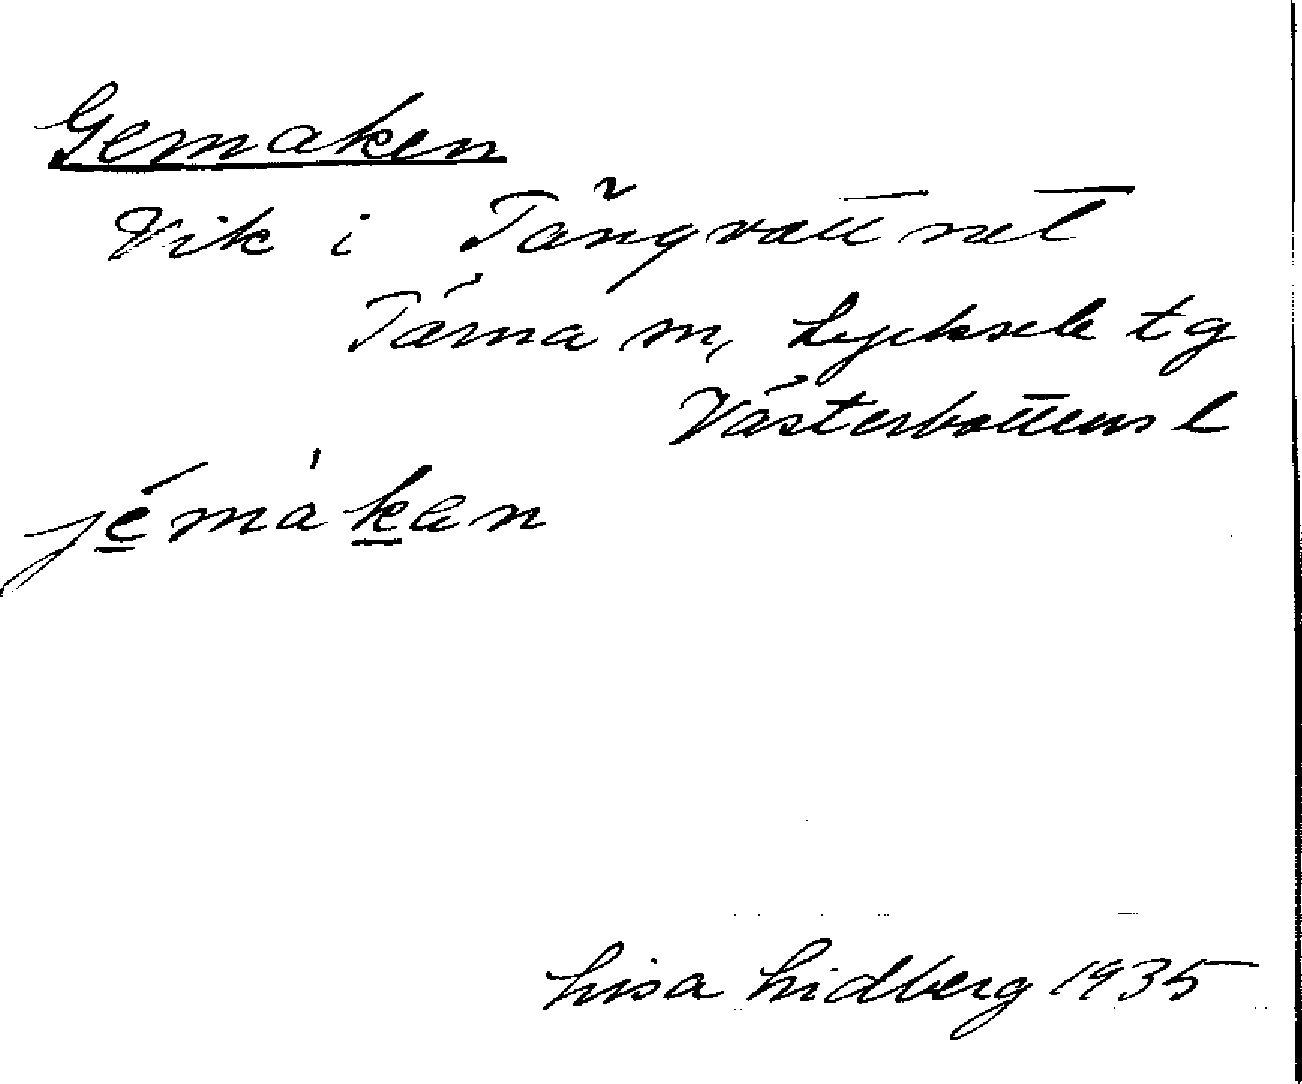 Gemaken
Vik i Tängvattnet
Tärna m, Lycksele tg
Västerbottens l
jémákan
Lisa Lidberg 1935